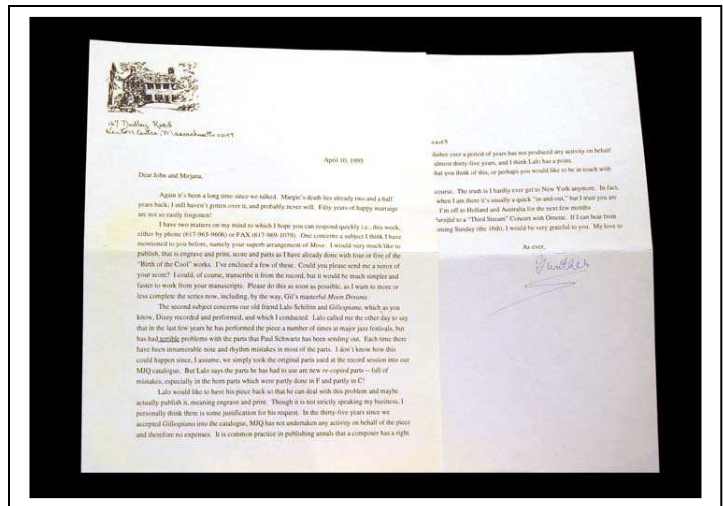 167 Dudley Road
Newton Centre, Massachusetts 02159
April 10, 1995
Dear John and Mirjana,
Again it's been a long time since we talked. Margie's death lies already two and a half
years back; I still haven't gotten over it, and probably never will. Fifty years of happy marriage
are not so easily forgotten!
I have two matters on my mind to which I hope you can respond quickly i.e., this week,
either by phone (617-965-9606) or FAX (617-969-1079). One concerns a subject I think I have
mentioned to you before, namely your superb arrangement of Move. I would very much like to
publish, that is engrave and print, score and parts as I have already done with four or five of the
"Birth of the Cool" works. I've enclosed a few of these. Could you please send me a xerox of
your score? I could, of course, transcribe it from the record, but it would be much simpler and
faster to work from your manuscripts. Please do this as soon as possible, as I want to more or
less complete the series now, including, by the way, Gil's masterful Moon Dreams.
The second subject concerns our old friend Lalo Schifrin and Gillespiana, which as you
know, Dizzy recorded and performed, and which I conducted. Lalo called me the other day to say
that in the last few years he has performed the piece a number of times at major jazz festivals, but
has had terrible problems with the parts that Paul Schwartz has been sending out. Each time there
have been innumerable note and rhythm mistakes in most of the parts. I don't know how this
could happen since, I assume, we simply took the original parts used at the record session into our
MJQ catalogue. But Lalo says the parts he has had to use are new re-copied parts – full of
mistakes, especially in the horn parts which were partly done in F and partly in C!
Lalo would like to have his piece back so that he can deal with this problem and maybe
actually publish it, meaning engrave and print. Though it is not strictly speaking my business, I
personally think there is some justification for his request. In the thirty-five years since we
accepted Gillespiana into the catalogue, MJQ has not undertaken any activity on behalf of the piece
and therefore no expenses. It is common practice in publishing annals that a composer has a right
02159
blisher over a period of years has not produced any activity on behalf
almost thirty-five years, and I think Lalo has a point.
hat you think of this, or perhaps you would like to be in touch with
course. The truth is I hardly ever get to New York anymore. In fact,
when I am there it's usually a quick "in-and-out," but I trust you are
I'm off to Holland and Australia for the next few months
to a "Third Stream" Concert with Ornette. If I can hear from
oming Sunday (the 16th), I would be very grateful to you. My love to
As ever,
Gunther